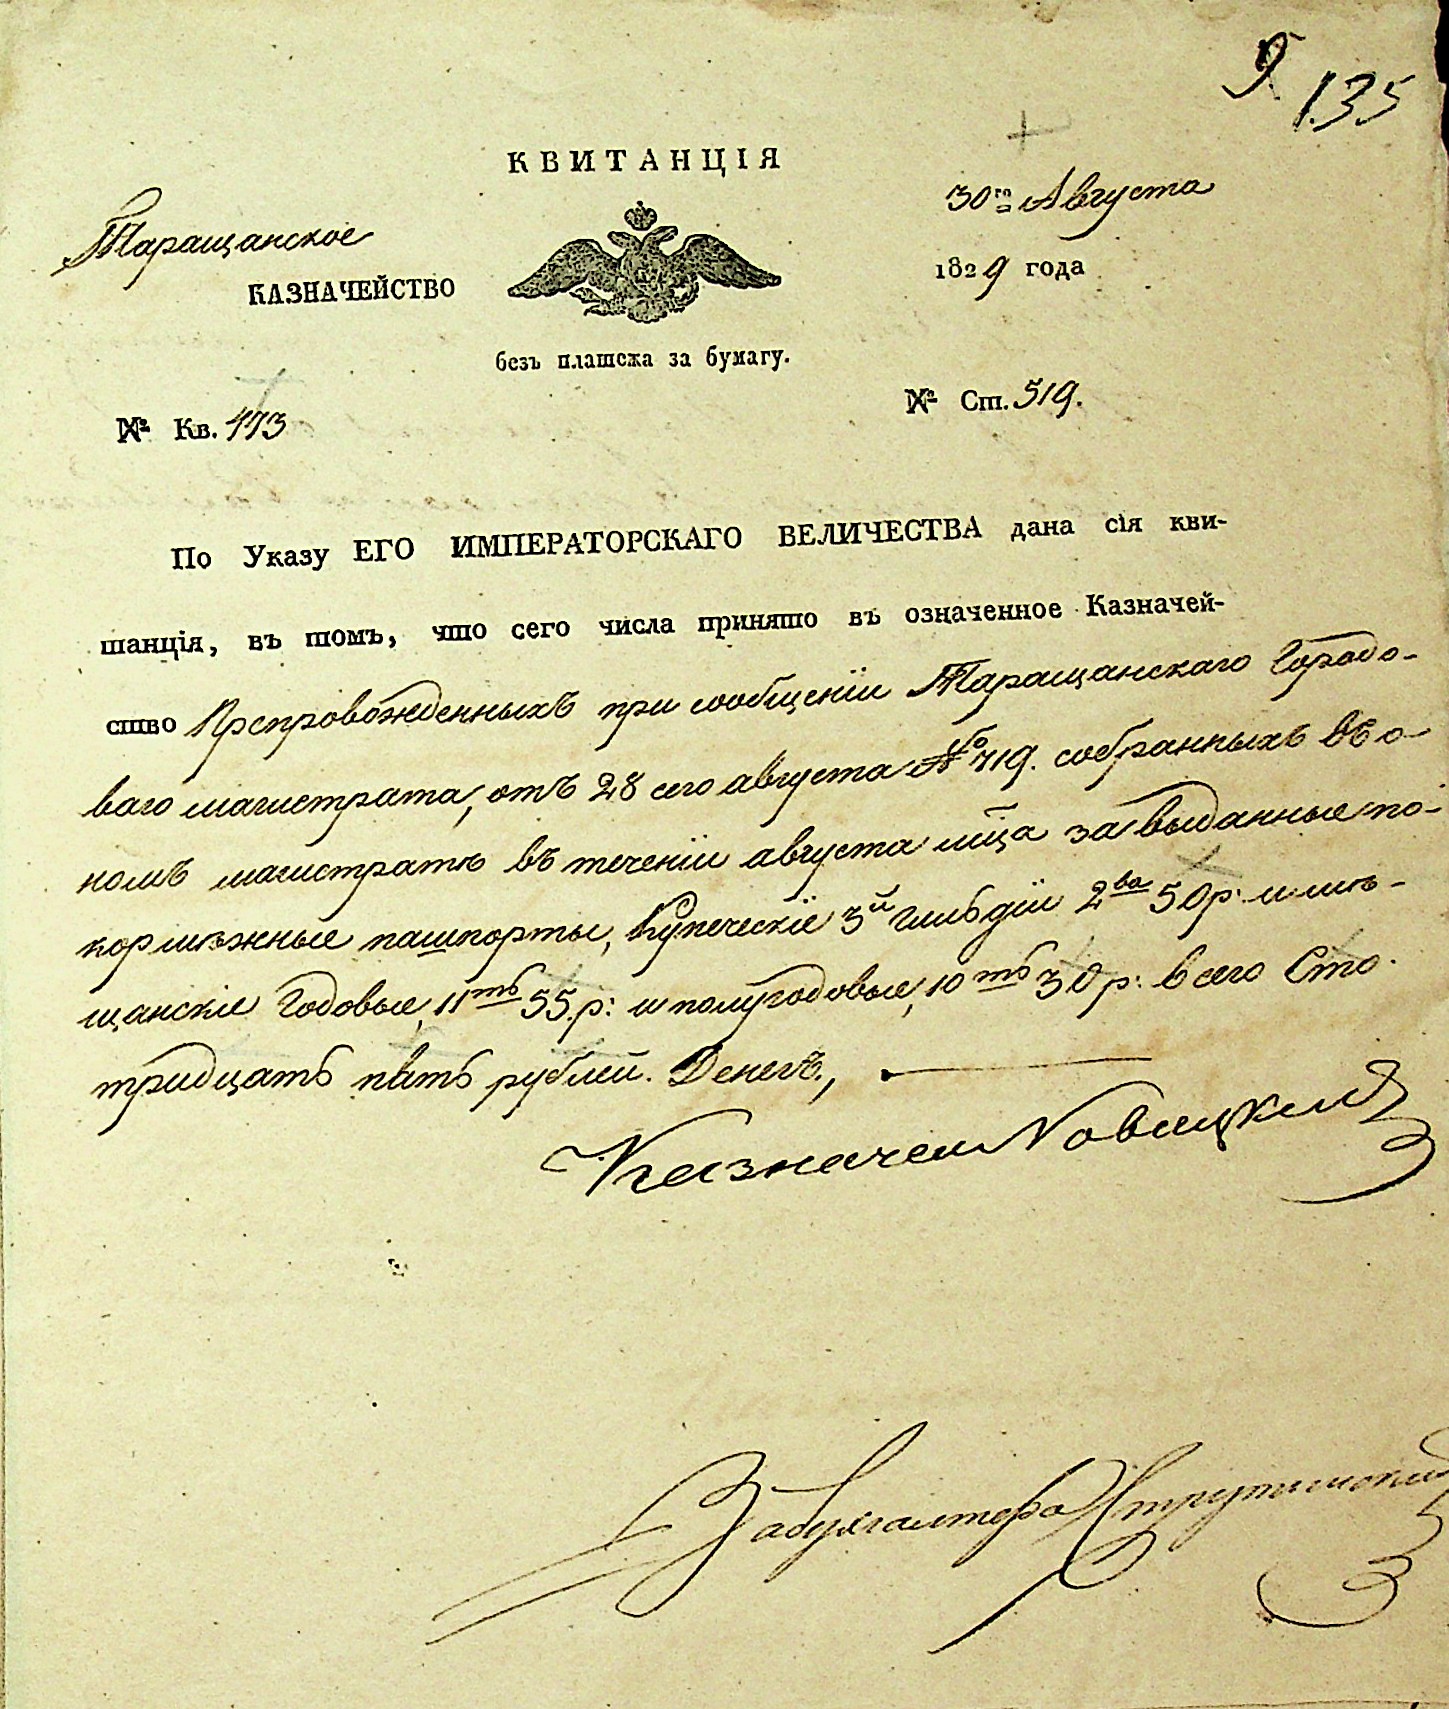 9.
135
КВИТАНЦІЯ
Таращанское
КАЗНАЧЕЙСТВО
30го Августа
1829 года
безъ платежа за бумагу.
№ Кв. 473
№ Ст. 519.
По Указу ЕГО ИМПЕРАТОРСКАГО ВЕЛИЧЕСТВА дана сія кви-
танція, въ томъ, что сего числа принято въ означенное Казначей-
ство Препровожденныхъ при сообщеніи Таращанскаго Городо-
ваго магистрата, отъ 28 сего августа №719. собранныхъ въ о-
номъ магистратѣ въ теченіи августа мца за выданные по-
кормежные пашпорты, Купеческіе 3й гильдіи 2ва 50 р: и мѣ-
щанскіе Годовые, 11ть 55 р: и полугодовые, 10ть 30 р: всего Сто
тридцать пять рублей. Денегъ,
Казначей Новицкій
За бухгалтера Струтинскій